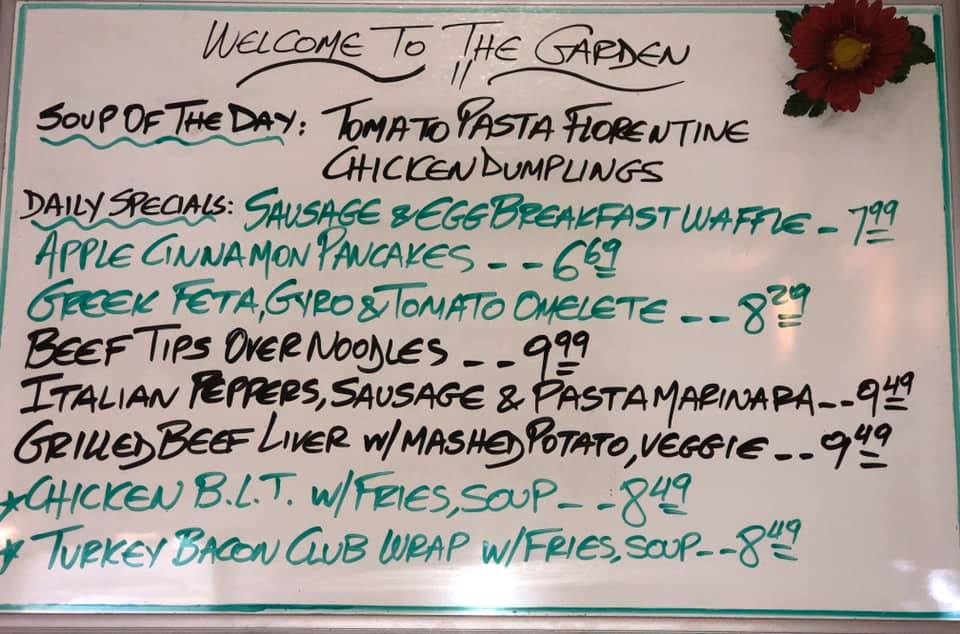 WELCOME TO THE GARDEN
SOUP OF THE DAY: TOMATO PASTA FLORENTINE
CHICKEN DUMPLINGS
DAILY SPECIALS: SAUSAGE & EGG BREAKFAST WAFFLE - 7.99
APPLE CINNAMON PANCAKES - - 6.69
GREEK FETA, GYRO & TOMATO OMELETE - - 8.29
BEEF TIPS OVER NOODLES - - 9.99
ITALIAN PEPPERS, SAUSAGE & PASTA MARINARA - - 9.49
GRILLED BEEF LIVER W/ MASHED POTATO, VEGGIE - - 9.49
★ CHICKEN B.L.T. W/ FRIES, SOUP - - 8.49
★ TURKEY BACON CLUB WRAP W/ FRIES, SOUP - - 8.49